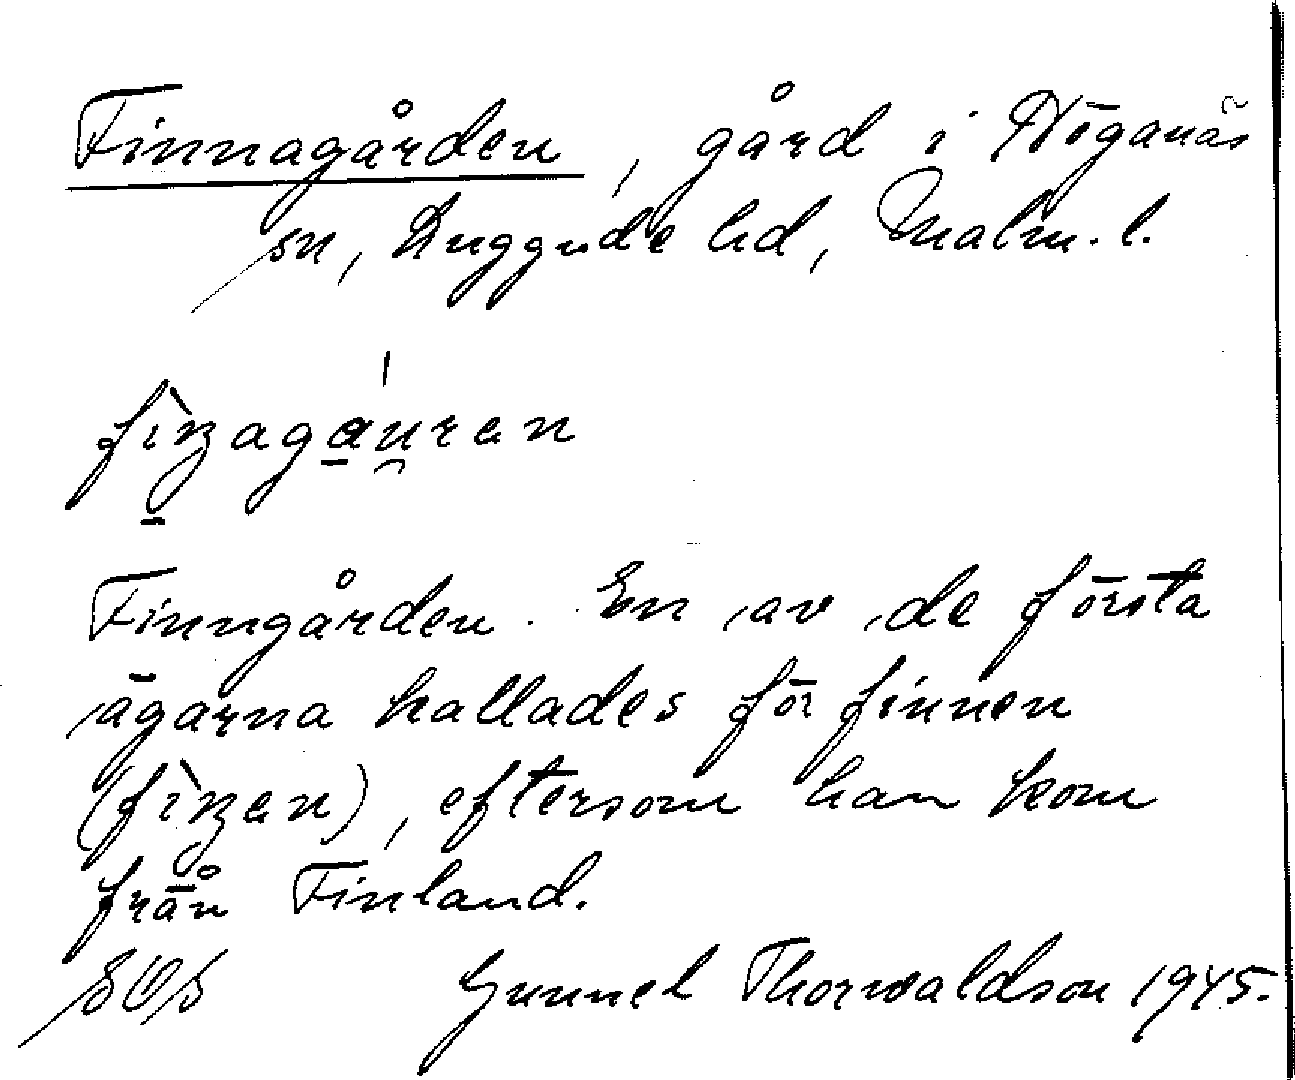 Finnagården, gård i Höganäs
sn, Luggude hd, Malm. l.
Finngården. En av de första
ägarna kallades för finnen
, eftersom han kom
från Finland.
SOS Gunnel Thorwaldson 1945.